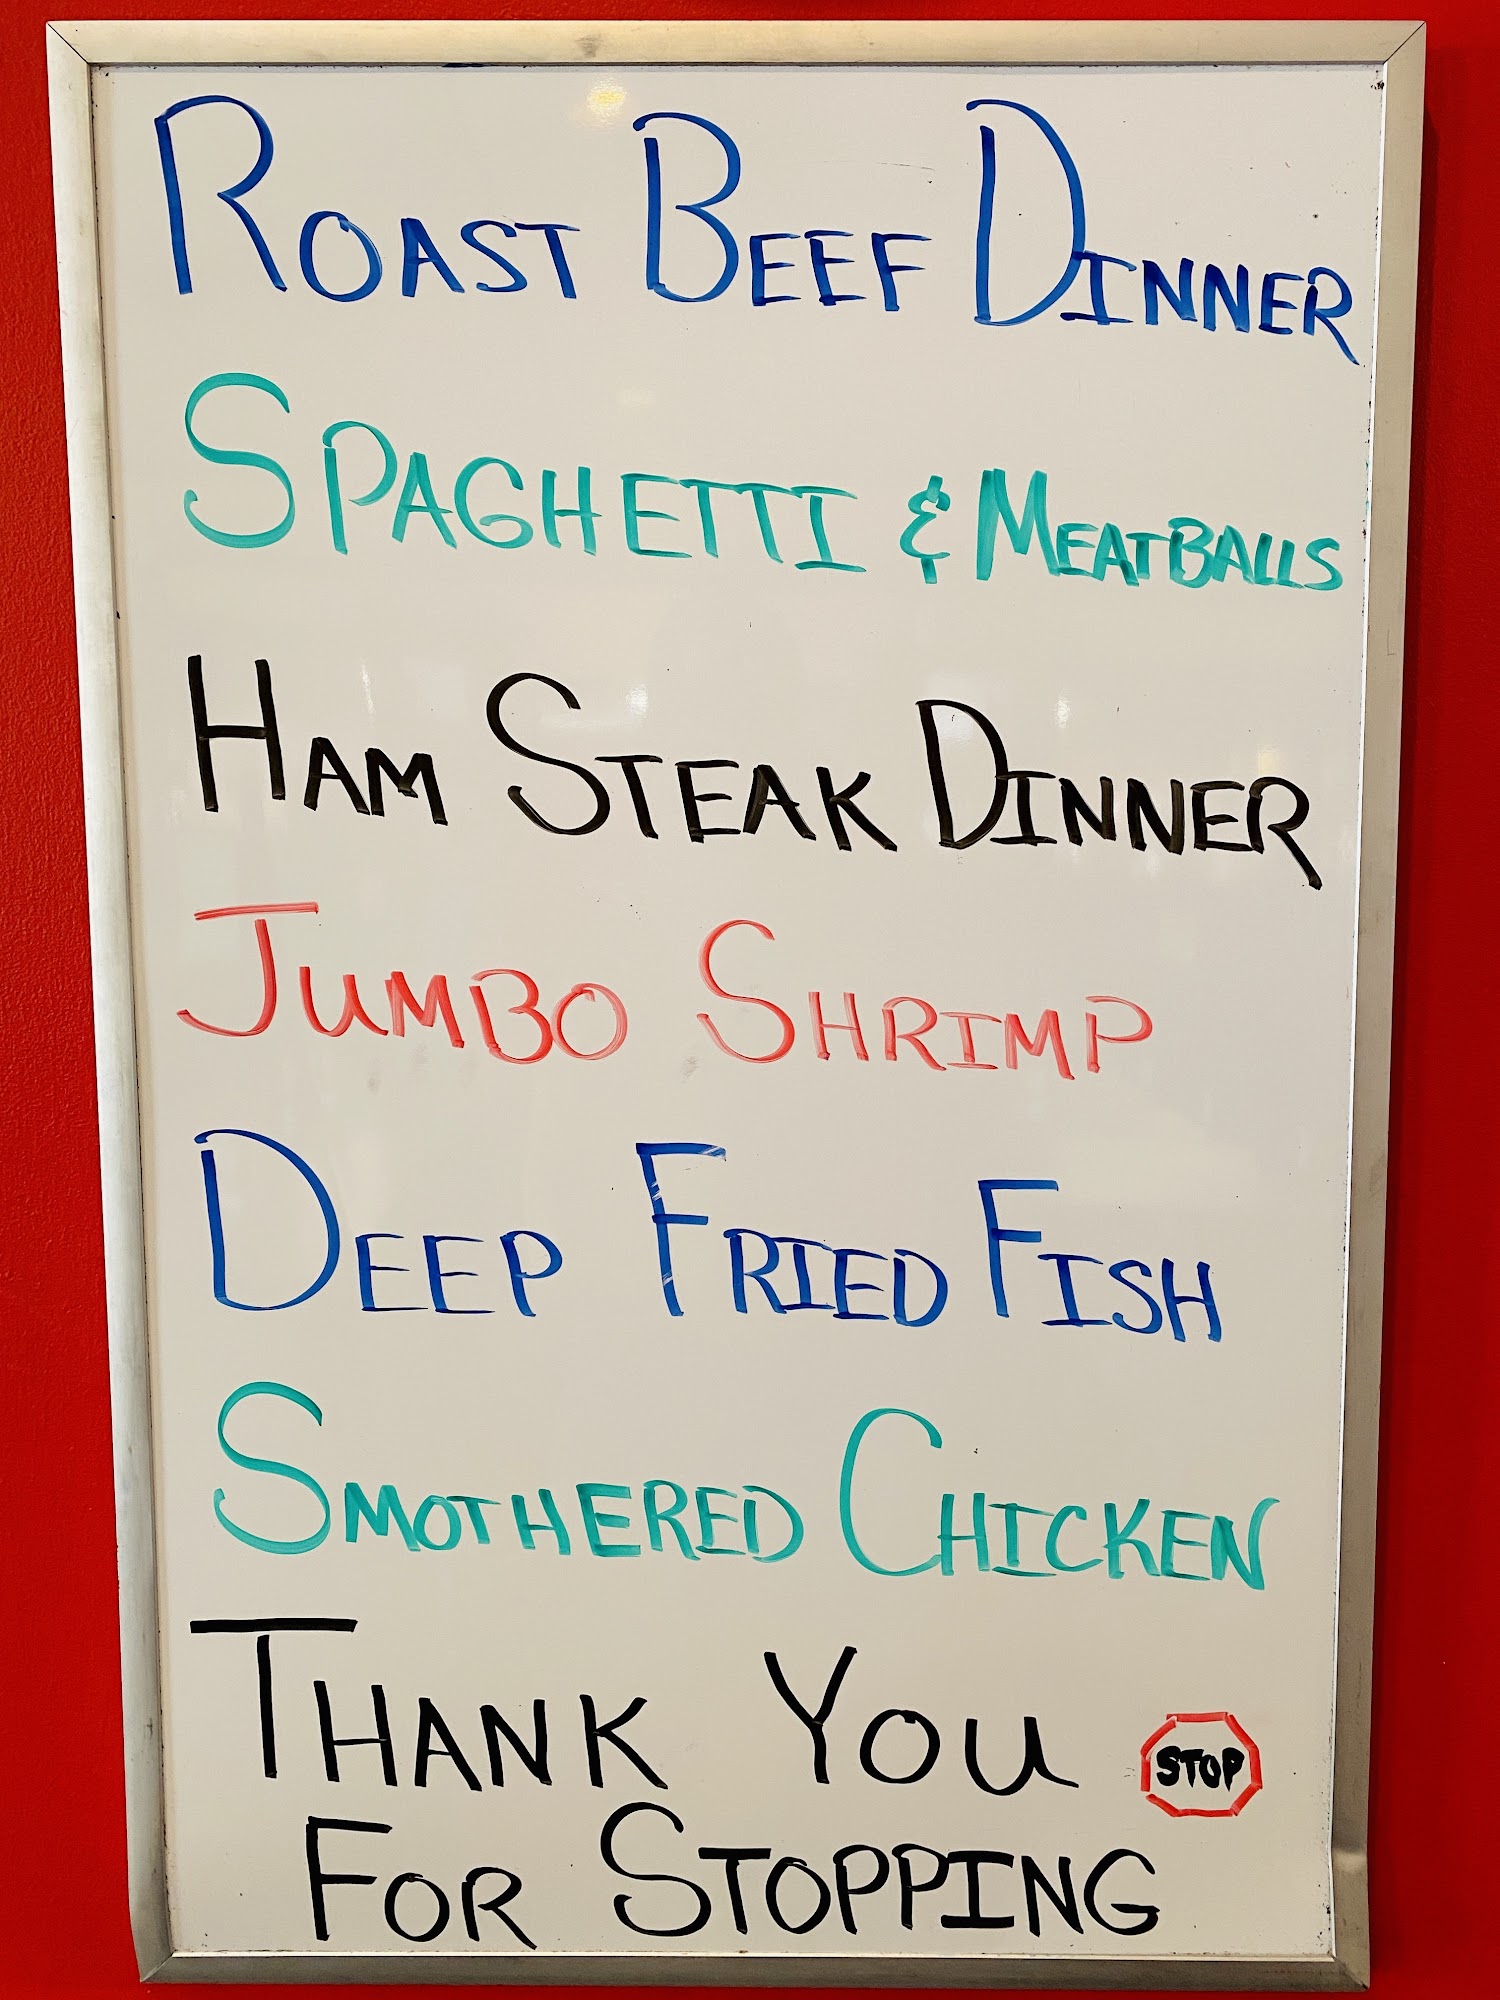 ROAST BEEF DINNER
SPAGHETTI & MEATBALLS
HAM STEAK DINNER
JUMBO SHRIMP
DEEP FRIED FISH
SMOTHERED CHICKEN
THANK YOU STOP
FOR STOPPING